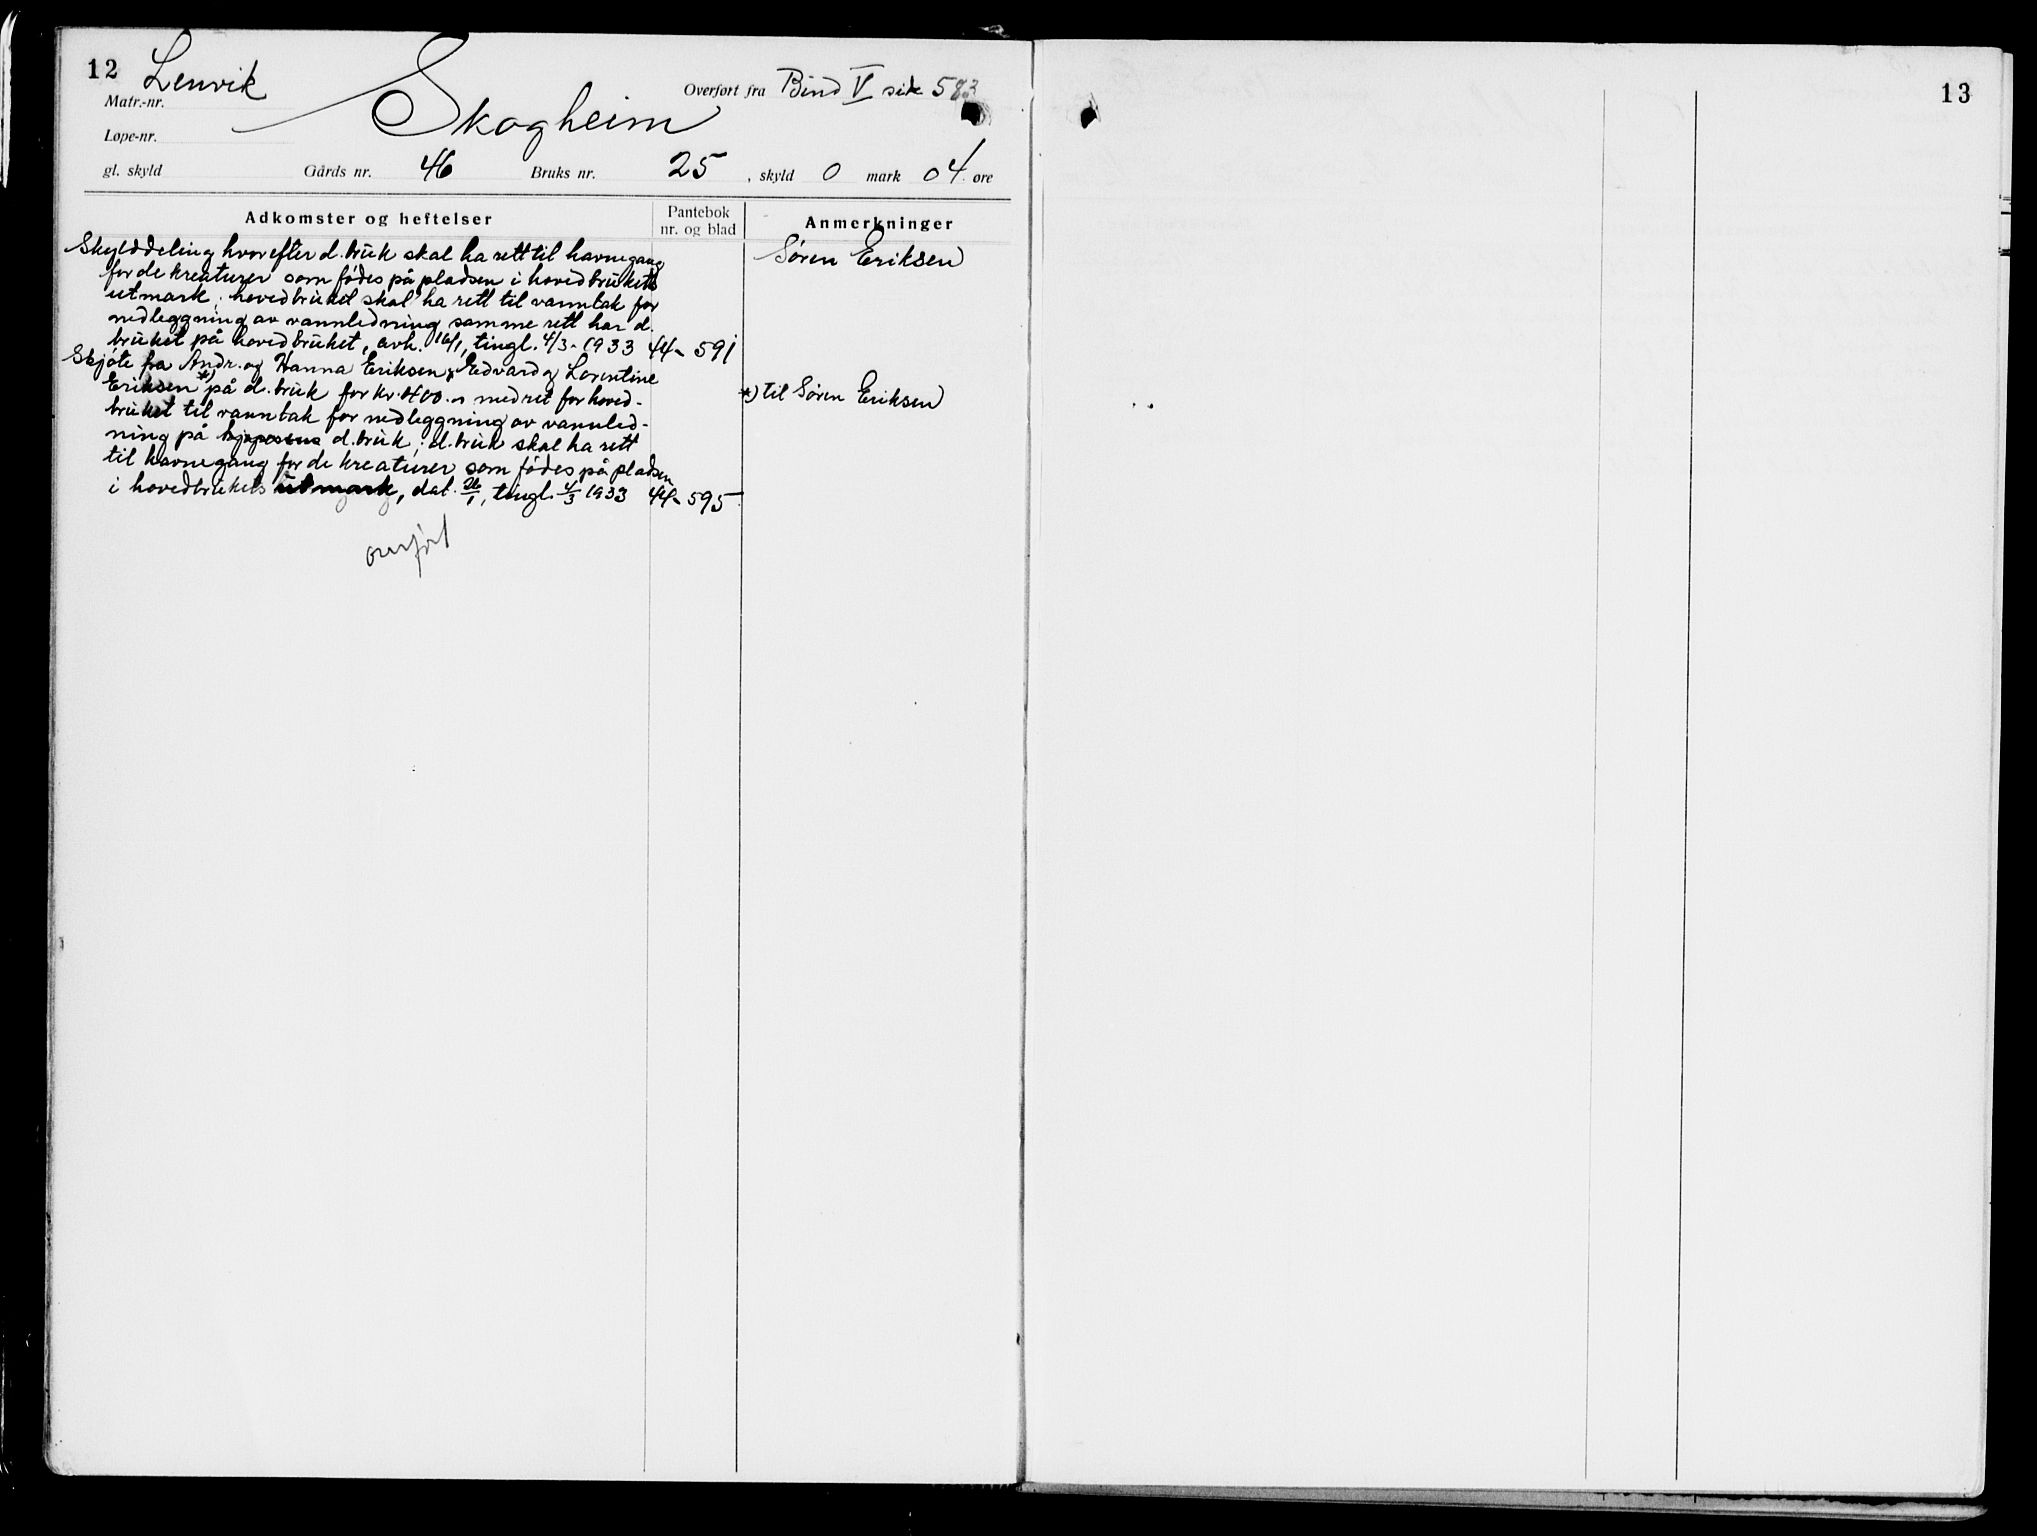 12
Lenvik
Matr.-nr.
Overført fra Bind V side 583
Skogheim
Løpe-nr.
gl. skyld Gårds nr. 46 Bruks nr. 25, skyld 0 mark 04 øre
Adkomster og heftelser
Pantebok
nr. og blad
Anmerkninger
Skylddeling hvorefter d. bruk skal ha rett til havnegang
for de kreaturer som fødes på pladsen i hovedbrukets
utmark; hovedbruket skal ha rett til vanntak for
nedleggning av vannledning samme rett har d.
bruket på hovedbruket, avh. 16/1, tingl. 4/3- 1933 44- 591
Søren Eriksen
Skjøte fra Andr. og Hanna Eriksen, Edvard og Lorentine
Eriksen *) på d. bruk for kr. 400.- med ret for hoved-
*) til Søren Eriksen
bruket til vanntak for nedleggning av vannled-
ning på d. bruk; d. bruk skal ha rett
til havnegang for de kreaturer som fødes på pladsen
i hovedbrukets utmark, dat. 26/1, tingl. 4/3 1933 44- 595
overført
13